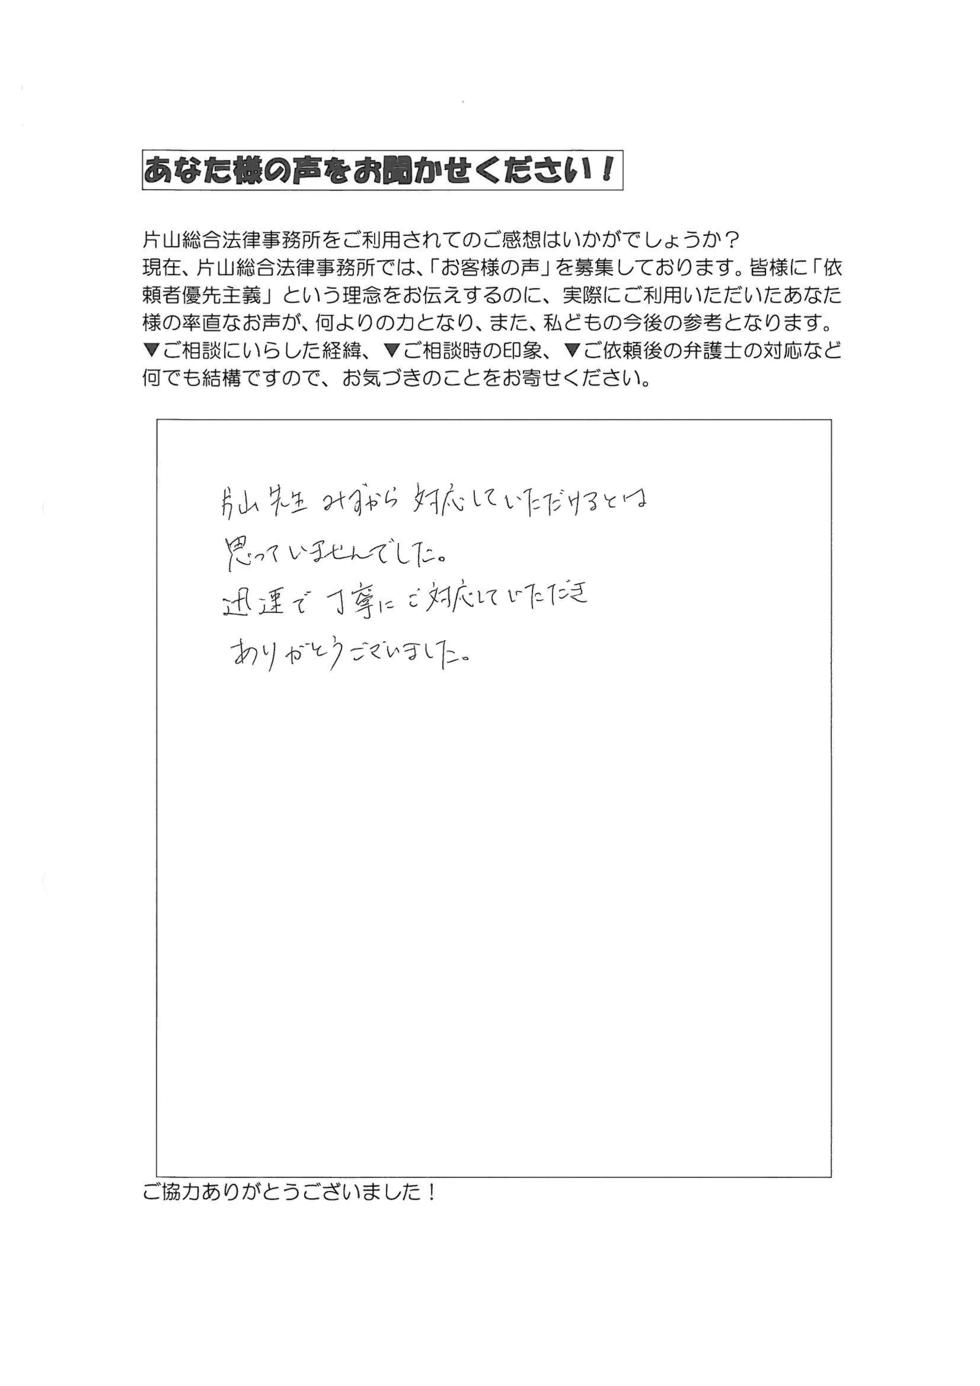 あなた様の声をお聞かせください！
片山総合法律事務所をご利用されてのご感想はいかがでしょうか？
現在、片山総合法律事務所では、「お客様の声」を募集しております。皆様に「依
頼者優先主義」という理念をお伝えするのに、実際にご利用いただいたあなた
様の率直なお声が、何よりの力となり、また、私どもの今後の参考となります。
▼ご相談にいらした経緯、▼ご相談時の印象、▼ご依頼後の弁護士の対応など
何でも結構ですので、お気づきのことをお寄せください。
片山先生みずから対応していただけるとは
思っていませんでした。
迅速で丁寧にご対応していただき
ありがとうございました。
ご協力ありがとうございました！